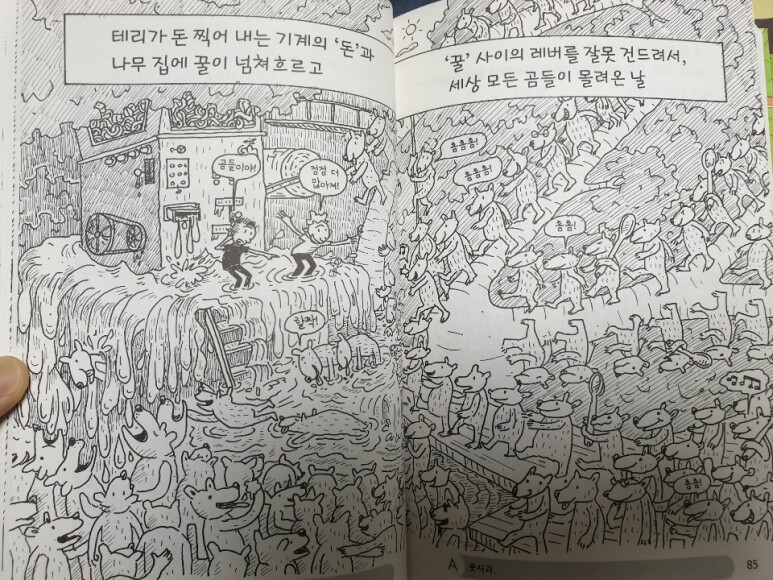 테리가 돈 찍어 내는 기계의 '돈'과
나무 집에 꿀이 넘쳐흐르고
곰들이야!
점점 더
많아져!
할짝!
'꿀' 사이의 레버를 잘못 건드려서,
세상 모든 곰들이 몰려온 날
욤욤욤!
욤욤욤!
욤욤!
욤욤!
A 풋사과.
85